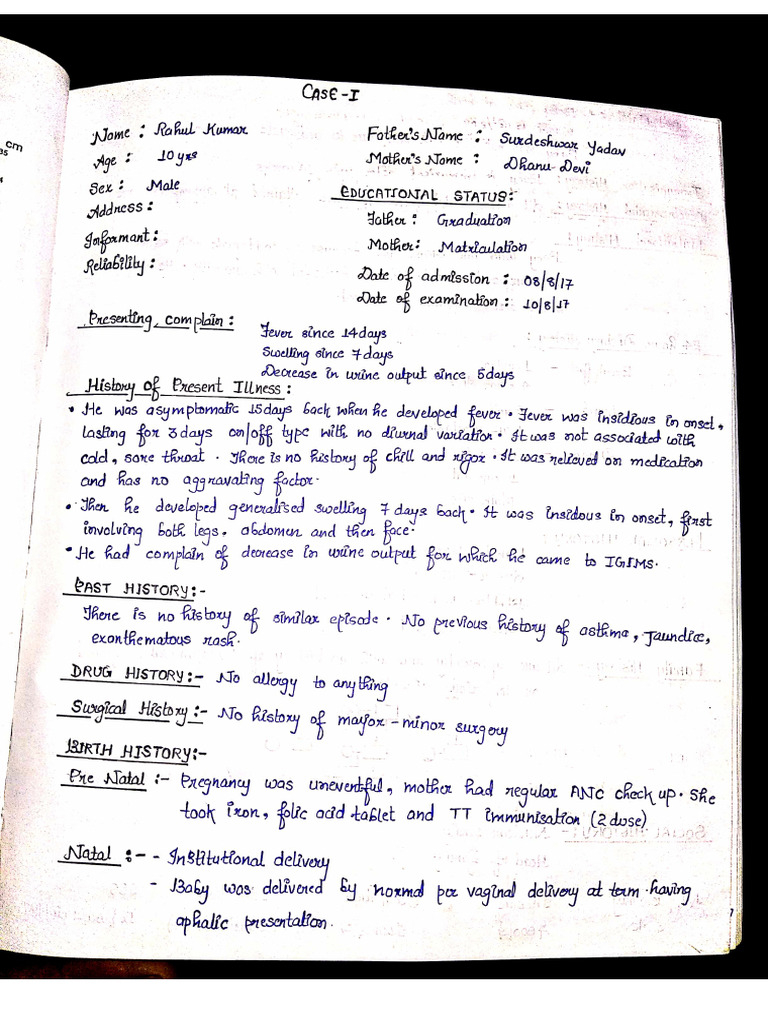 cm
CASE-I
Name : Rahul Kumar
Father's Name : Surdeshwar Yadav
Age : 10 yrs
Mother's Name : Dhanu Devi
Sex : Male
EDUCATIONAL STATUS:-
Address :
Father : Graduation
Informant :
Mother: Matriculation
Reliability :
Date of admission : 08/8/17
Date of examination : 10/8/17
Presenting complain :
Fever since 14 days
Swelling since 7 days
Decrease in urine output since 5 days
History of Present Illness :
• He was asymptomatic 15 days back when he developed fever. Fever was insidious in onset,
lasting for 3 days on/off type with no diurnal variation. It was not associated with
cold, sore throat. There is no history of chill and rigor. It was relieved on medication
and has no aggravating factor.
• Then he developed generalised swelling 7 days back. It was insidous in onset, first
involving both legs, abdomen and then face.
• He had complain of decrease in urine output for which he came to IGIMS.
PAST HISTORY:-
There is no history of similar episode. No previous history of asthma, Jaundice,
exonthematous rash.
DRUG HISTORY:- No allergy to anything
Surgical History:- No history of mayor-minor surgery
BIRTH HISTORY:-
Pre Natal :- Pregnancy was uneventful, mother had regular ANC check up. She
took iron, folic acid tablet and TT immunisation (2 dose)
Natal :- - Institutional delivery
- Baby was delivered by normal per vaginal delivery at term having
aphalic presentation.